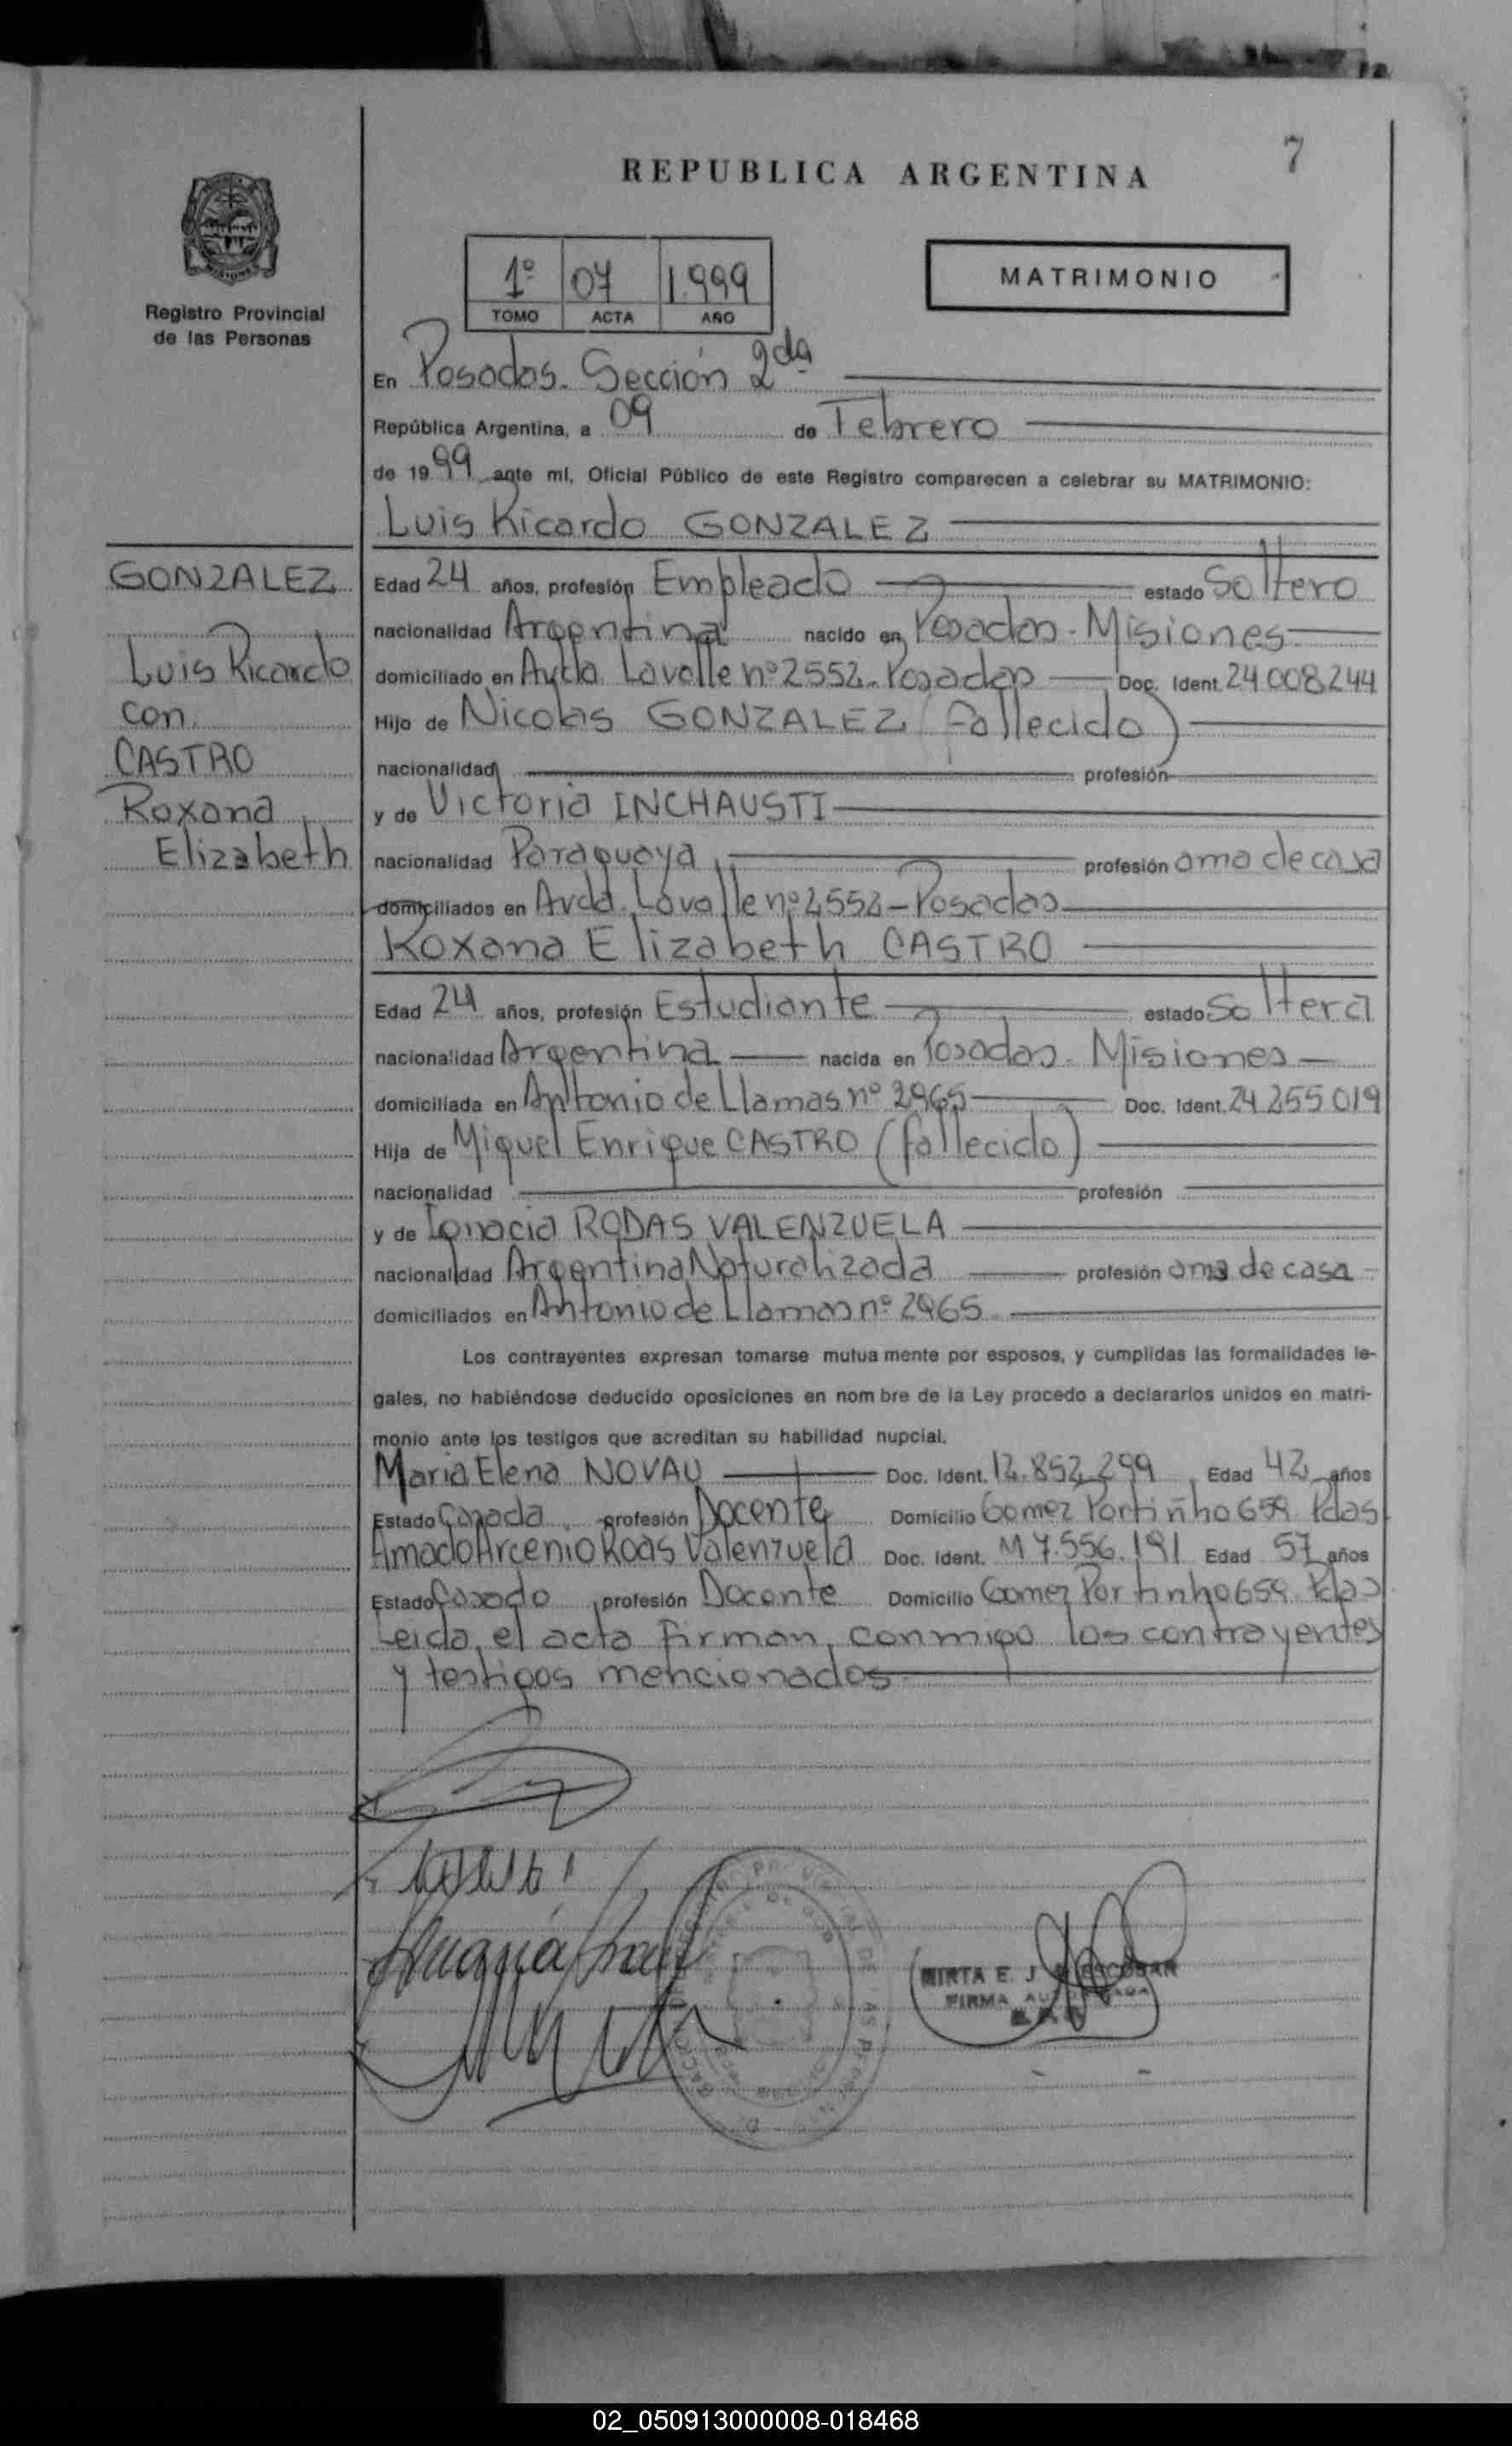 7
REPUBLICA ARGENTINA
Registro Provincial
de las Personas
1º 07 1.999
TOMO ACTA AÑO
MATRIMONIO
En Posadas. Sección 2da
República Argentina, a 09 de Febrero
de 1999 ante mí, Oficial Público de este Registro comparecen a celebrar su MATRIMONIO:
Luis Ricardo GONZALEZ
GONZALEZ
Luis Ricardo
con
CASTRO
Roxana
Elizabeth
Edad 24 años, profesión Empleado estado Soltero
nacionalidad Argentina nacido en Posadas - Misiones
domiciliado en Avda. Lavalle nº 2552 - Posadas Doc. Ident. 24.008.244
Hijo de Nicolas GONZALEZ (fallecido)
nacionalidad profesión
y de Victoria INCHAUSTI
nacionalidad Paraguaya profesión ama de casa
domiciliados en Avda. Lavalle nº 2552 - Posadas
Roxana Elizabeth CASTRO
Edad 24 años, profesión Estudiante estado Soltera
nacionalidad Argentina nacida en Posadas - Misiones
domiciliada en Antonio de Llamas nº 2965 Doc. Ident. 24.255.019
Hija de Miguel Enrique CASTRO (fallecido)
nacionalidad profesión
y de Ignacia RODAS VALENZUELA
nacionalidad Argentina Naturalizada profesión ama de casa
domiciliados en Antonio de Llamas nº 2965
Los contrayentes expresan tomarse mutua mente por esposos, y cumplidas las formalidades le-
gales, no habiéndose deducido oposiciones en nom bre de la Ley procedo a declararlos unidos en matri-
monio ante los testigos que acreditan su habilidad nupcial.
Maria Elena NOVAU Doc. Ident. 12.852.299 Edad 42 años
Estado Casada profesión Docente Domicilio Gomez Portiñho 659 Pdas
Amado Arcenio Roas Valenzuela Doc. Ident. M 7.556.191 Edad 57 años
Estado Casado profesión Docente Domicilio Gomez Portinho 659 Pdas
Leida el acta firman conmigo los contrayentes
y testigos mencionados
MIRTA E. J. ESCOBAR
FIRMA
02_050913000008-018468